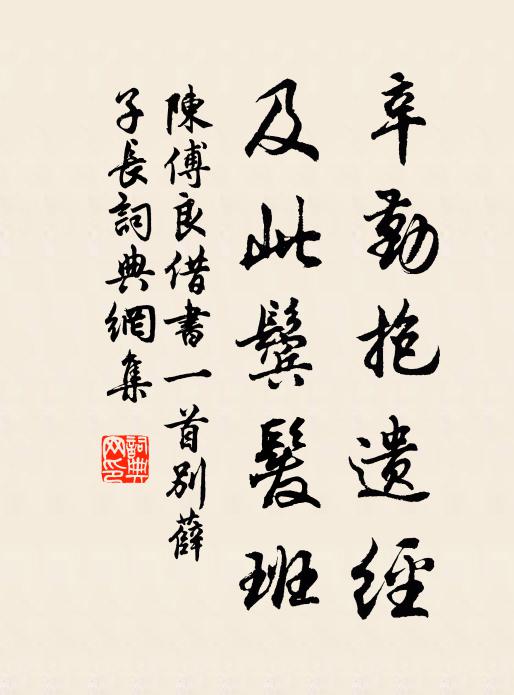 辛勤抱遺經
及此鬢髮班
陳傅良借書一首別薛
子長詞典網集
詞典网印